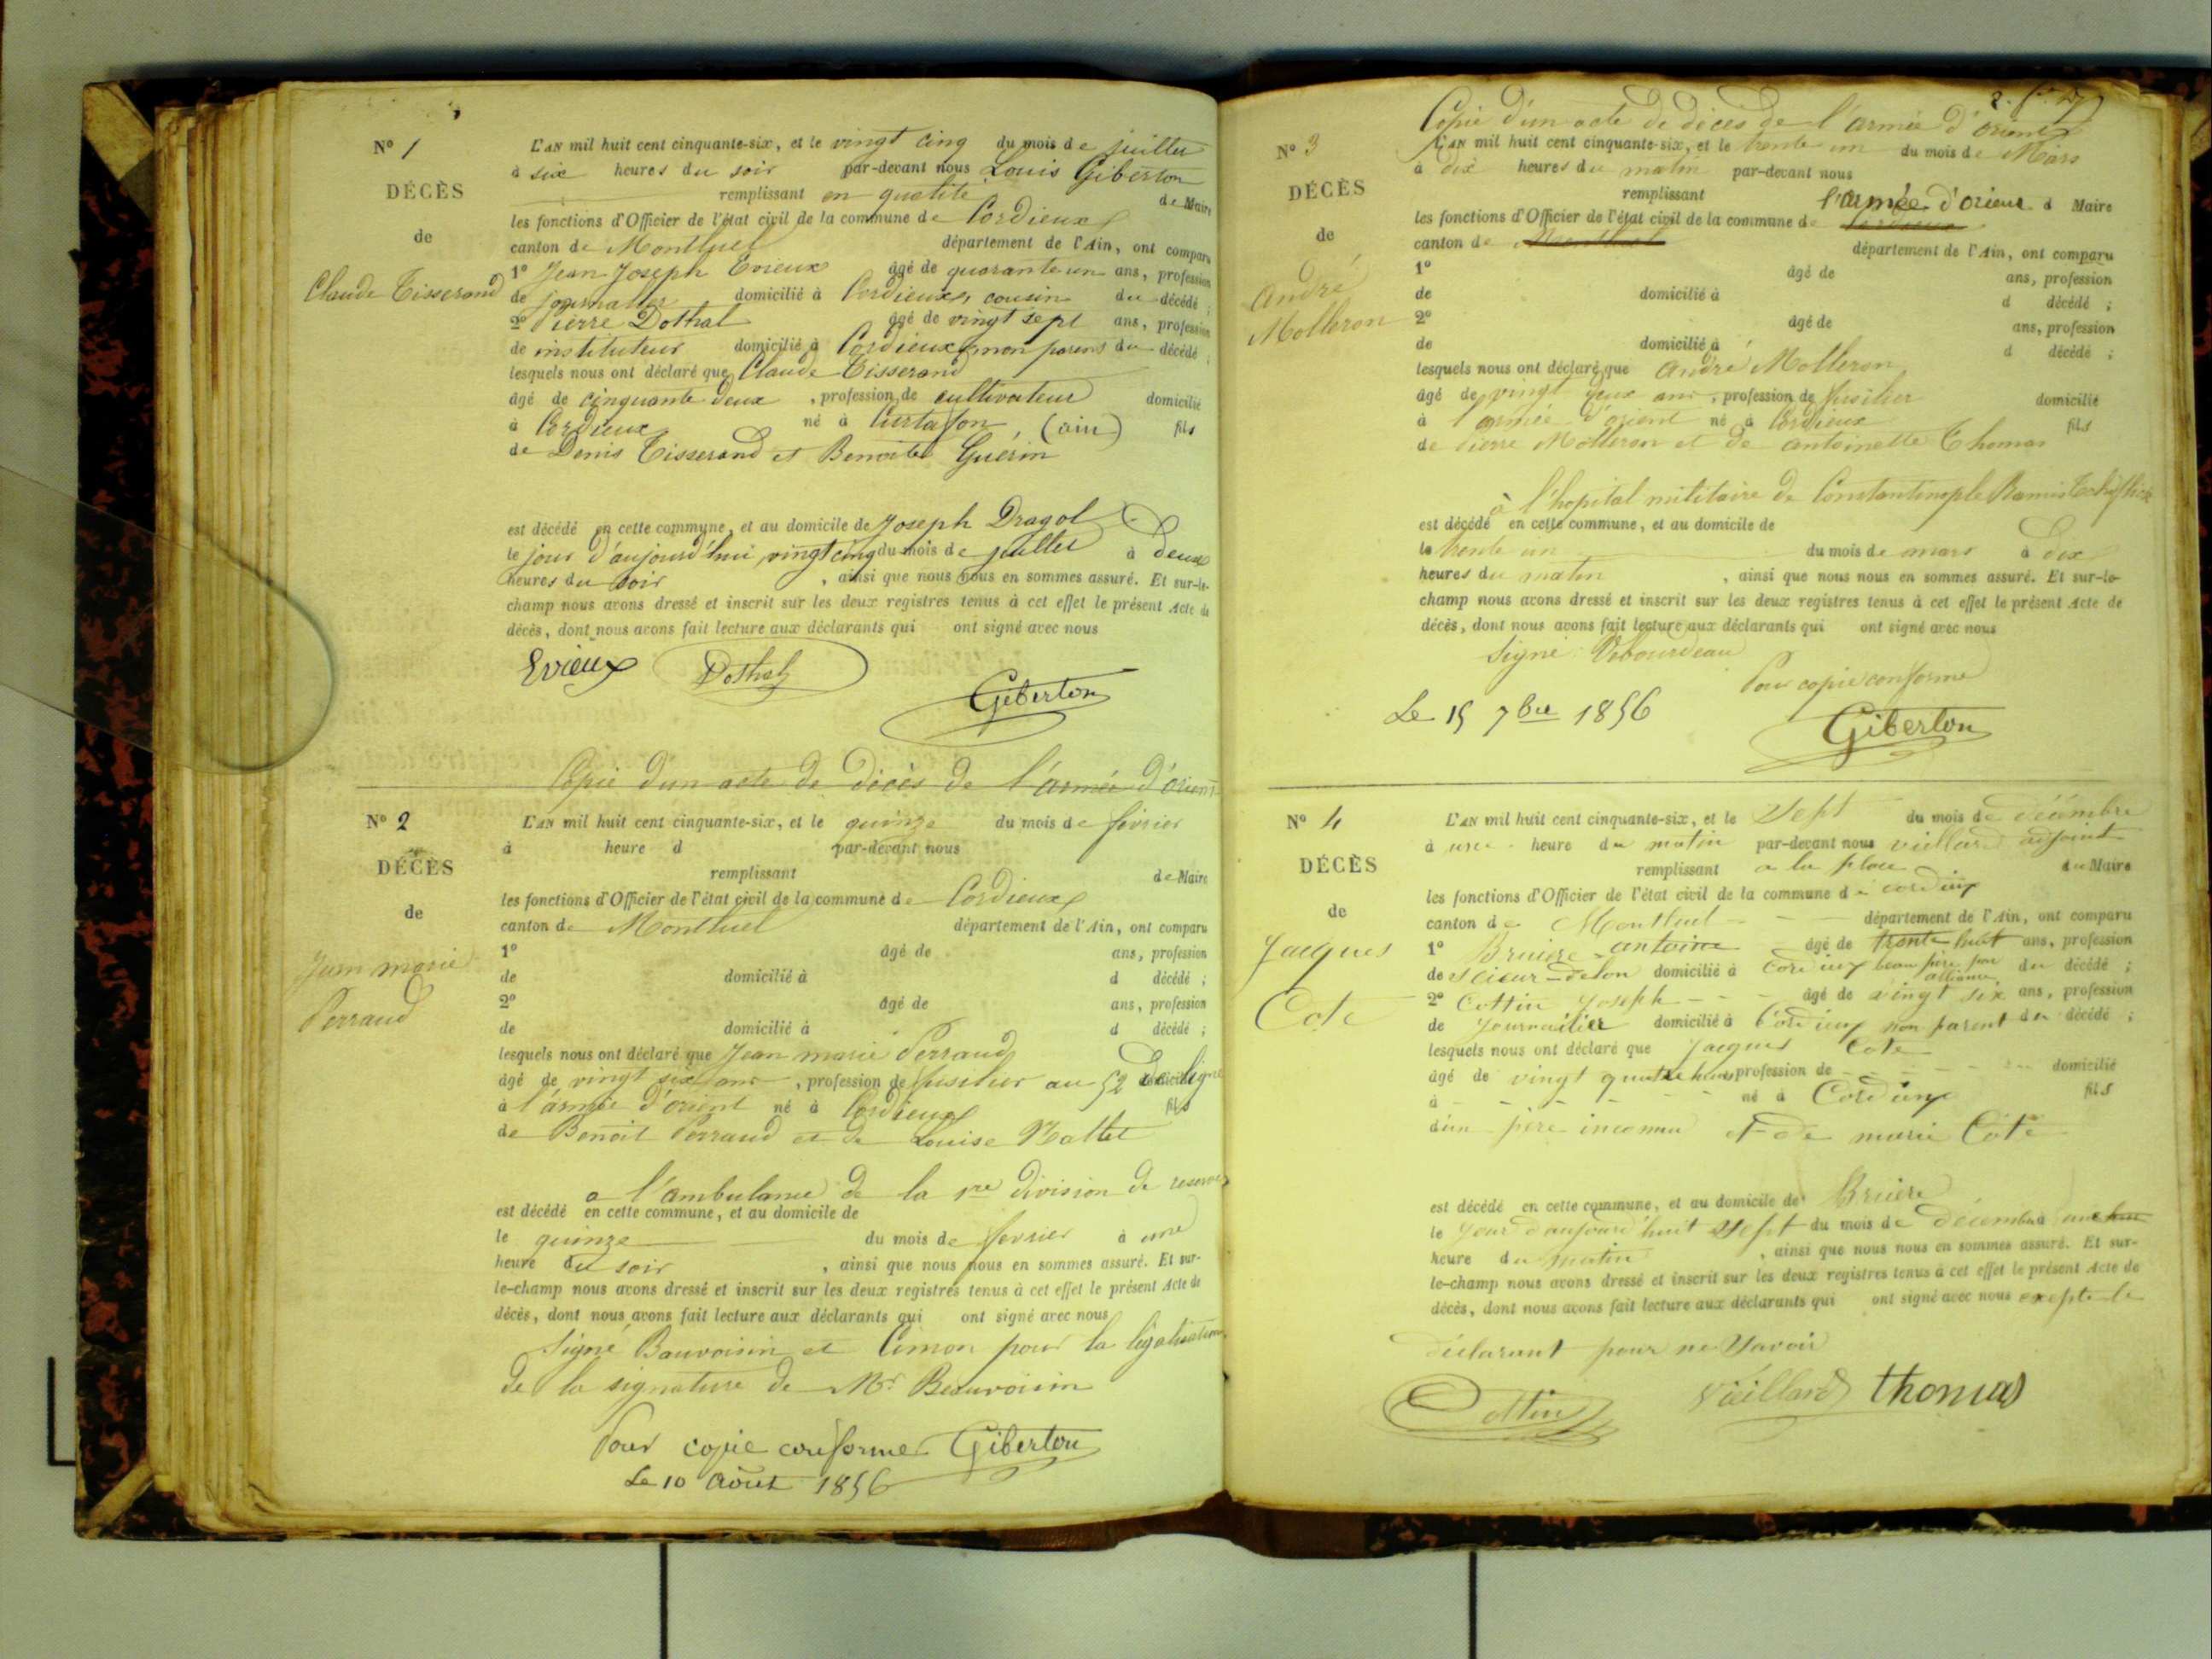 N° 1
DÉCÈS
de
Claude Tisserand
L'AN mil huit cent cinquante-six, et le vingt cinq du mois de juillet
à six heures du soir par-devant nous Louis Giberton
remplissant en qualité de Maire
les fonctions d'Officier de l'état civil de la commune de Cordieux
canton de Montluel département de l'Ain, ont comparu
1° Jean Joseph Evieux âgé de quarante un ans, profession
de journalier domicilié à Cordieux, cousin du décédé ;
2° Pierre Dothal âgé de vingt sept ans, profession
de instituteur domicilié à Cordieux, non parent du décédé ;
lesquels nous ont déclaré que Claude Tisserand
âgé de cinquante deux , profession de cultivateur domicilié
à Cordieux né à Curtafon, (ain) fils
de Denis Tisserand et Benoite Guérin
est décédé en cette commune, et au domicile de Joseph Dragol
le jour d'aujourd'hui vingt cinq du mois de juillet à deux
heures du soir , ainsi que nous nous en sommes assuré. Et sur-le-
champ nous avons dressé et inscrit sur les deux registres tenus à cet effet le présent Acte de
décès, dont nous avons fait lecture aux déclarants qui ont signé avec nous
Evieux Dothal
Giberton
Copie d'un acte de décès de l'armée d'orient
N° 2
DÉCÈS
de
Jean marie
Perraud
L'AN mil huit cent cinquante-six, et le quinze du mois de février
à heure d par-devant nous
remplissant de Maire
les fonctions d'Officier de l'état civil de la commune de Cordieux
canton de Montluel département de l'Ain, ont comparu
1° âgé de ans, profession
de domicilié à d décédé ;
2° âgé de ans, profession
de domicilié à d décédé ;
lesquels nous ont déclaré que Jean marie Perraud
âgé de vingt six ans , profession de fusilier au 52 de ligne domicilié
à l'armée d'orient né à Cordieux fils
de Benoit Perraud et de Louise Nallet
a l'ambulance de la 1re division de reserve
est décédé en cette commune, et au domicile de
le quinze du mois de février à une
heure du soir , ainsi que nous nous en sommes assuré. Et sur-
le-champ nous avons dressé et inscrit sur les deux registres tenus à cet effet le présent Acte de
décès, dont nous avons fait lecture aux déclarants qui ont signé avec nous
Signé Bauvoisin et Cimon pour la légalisation
de la signature de Mr Beauvoisin
Pour copie conforme Giberton
Le 10 Août 1856
Copie d'un acte de décès de l'armée d'orient
N° 3
DÉCÈS
de
André
Molleron
L'AN mil huit cent cinquante-six, et le trente un du mois de Mars
à dix heures du matin par-devant nous
remplissant l'armée d'orient d Maire
les fonctions d'Officier de l'état civil de la commune de Cordieux
canton de Montluel département de l'Ain, ont comparu
1° âgé de ans, profession
de domicilié à d décédé ;
2° âgé de ans, profession
de domicilié à d décédé ;
lesquels nous ont déclaré que André Molleron
âgé de vingt deux ans , profession de fusilier domicilié
à l'armée d'orient né à Cordieux fils
de Pierre Molleron et de antoinette Thomas
à l'hopital militaire de Constantinople
est décédé en cette commune, et au domicile de
le trente un du mois de mars à dix
heures du matin , ainsi que nous nous en sommes assuré. Et sur-le-
champ nous avons dressé et inscrit sur les deux registres tenus à cet effet le présent Acte de
décès, dont nous avons fait lecture aux déclarants qui ont signé avec nous
Signé Debourdeau
Pour copie conforme
Le 15 7bre 1856
Giberton
N° 4
DÉCÈS
de
Jacques
Cote
L'AN mil huit cent cinquante-six, et le Sept du mois de décembre
à une heure du matin par-devant nous viellard adjoint
remplissant a la place du Maire
les fonctions d'Officier de l'état civil de la commune de cordieux
canton de Montluel département de l'Ain, ont comparu
1° Bruiere antoine âgé de trente huit ans, profession
de Scieur de lon domicilié à Cordieux beau père par alliance du décédé ;
2° Cottin Joseph âgé de vingt six ans, profession
de Journailier domicilié à Cordieux non parent du décédé ;
lesquels nous ont déclaré que Jacques Cote
âgé de vingt quatre heures profession de domicilié
à né à Cordieux fils
d'un père inconnu et de marie Cote
est décédé en cette commune, et au domicile de Bruiere
le Jour d'aujourd'huit Sept du mois de décembre à une
heure du matin , ainsi que nous nous en sommes assuré. Et sur-
le-champ nous avons dressé et inscrit sur les deux registres tenus à cet effet le présent Acte de
décès, dont nous avons fait lecture aux déclarants qui ont signé avec nous exepte le
déclarant pour ne Savoir
Cottin Viellard thomas